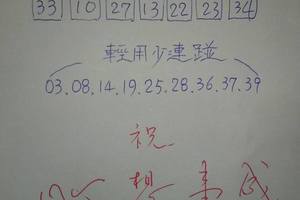 33 10 27 13 22 23 34
輕用少連碰
03.08.14.19.25.28.36.37.39
祝
心想事成